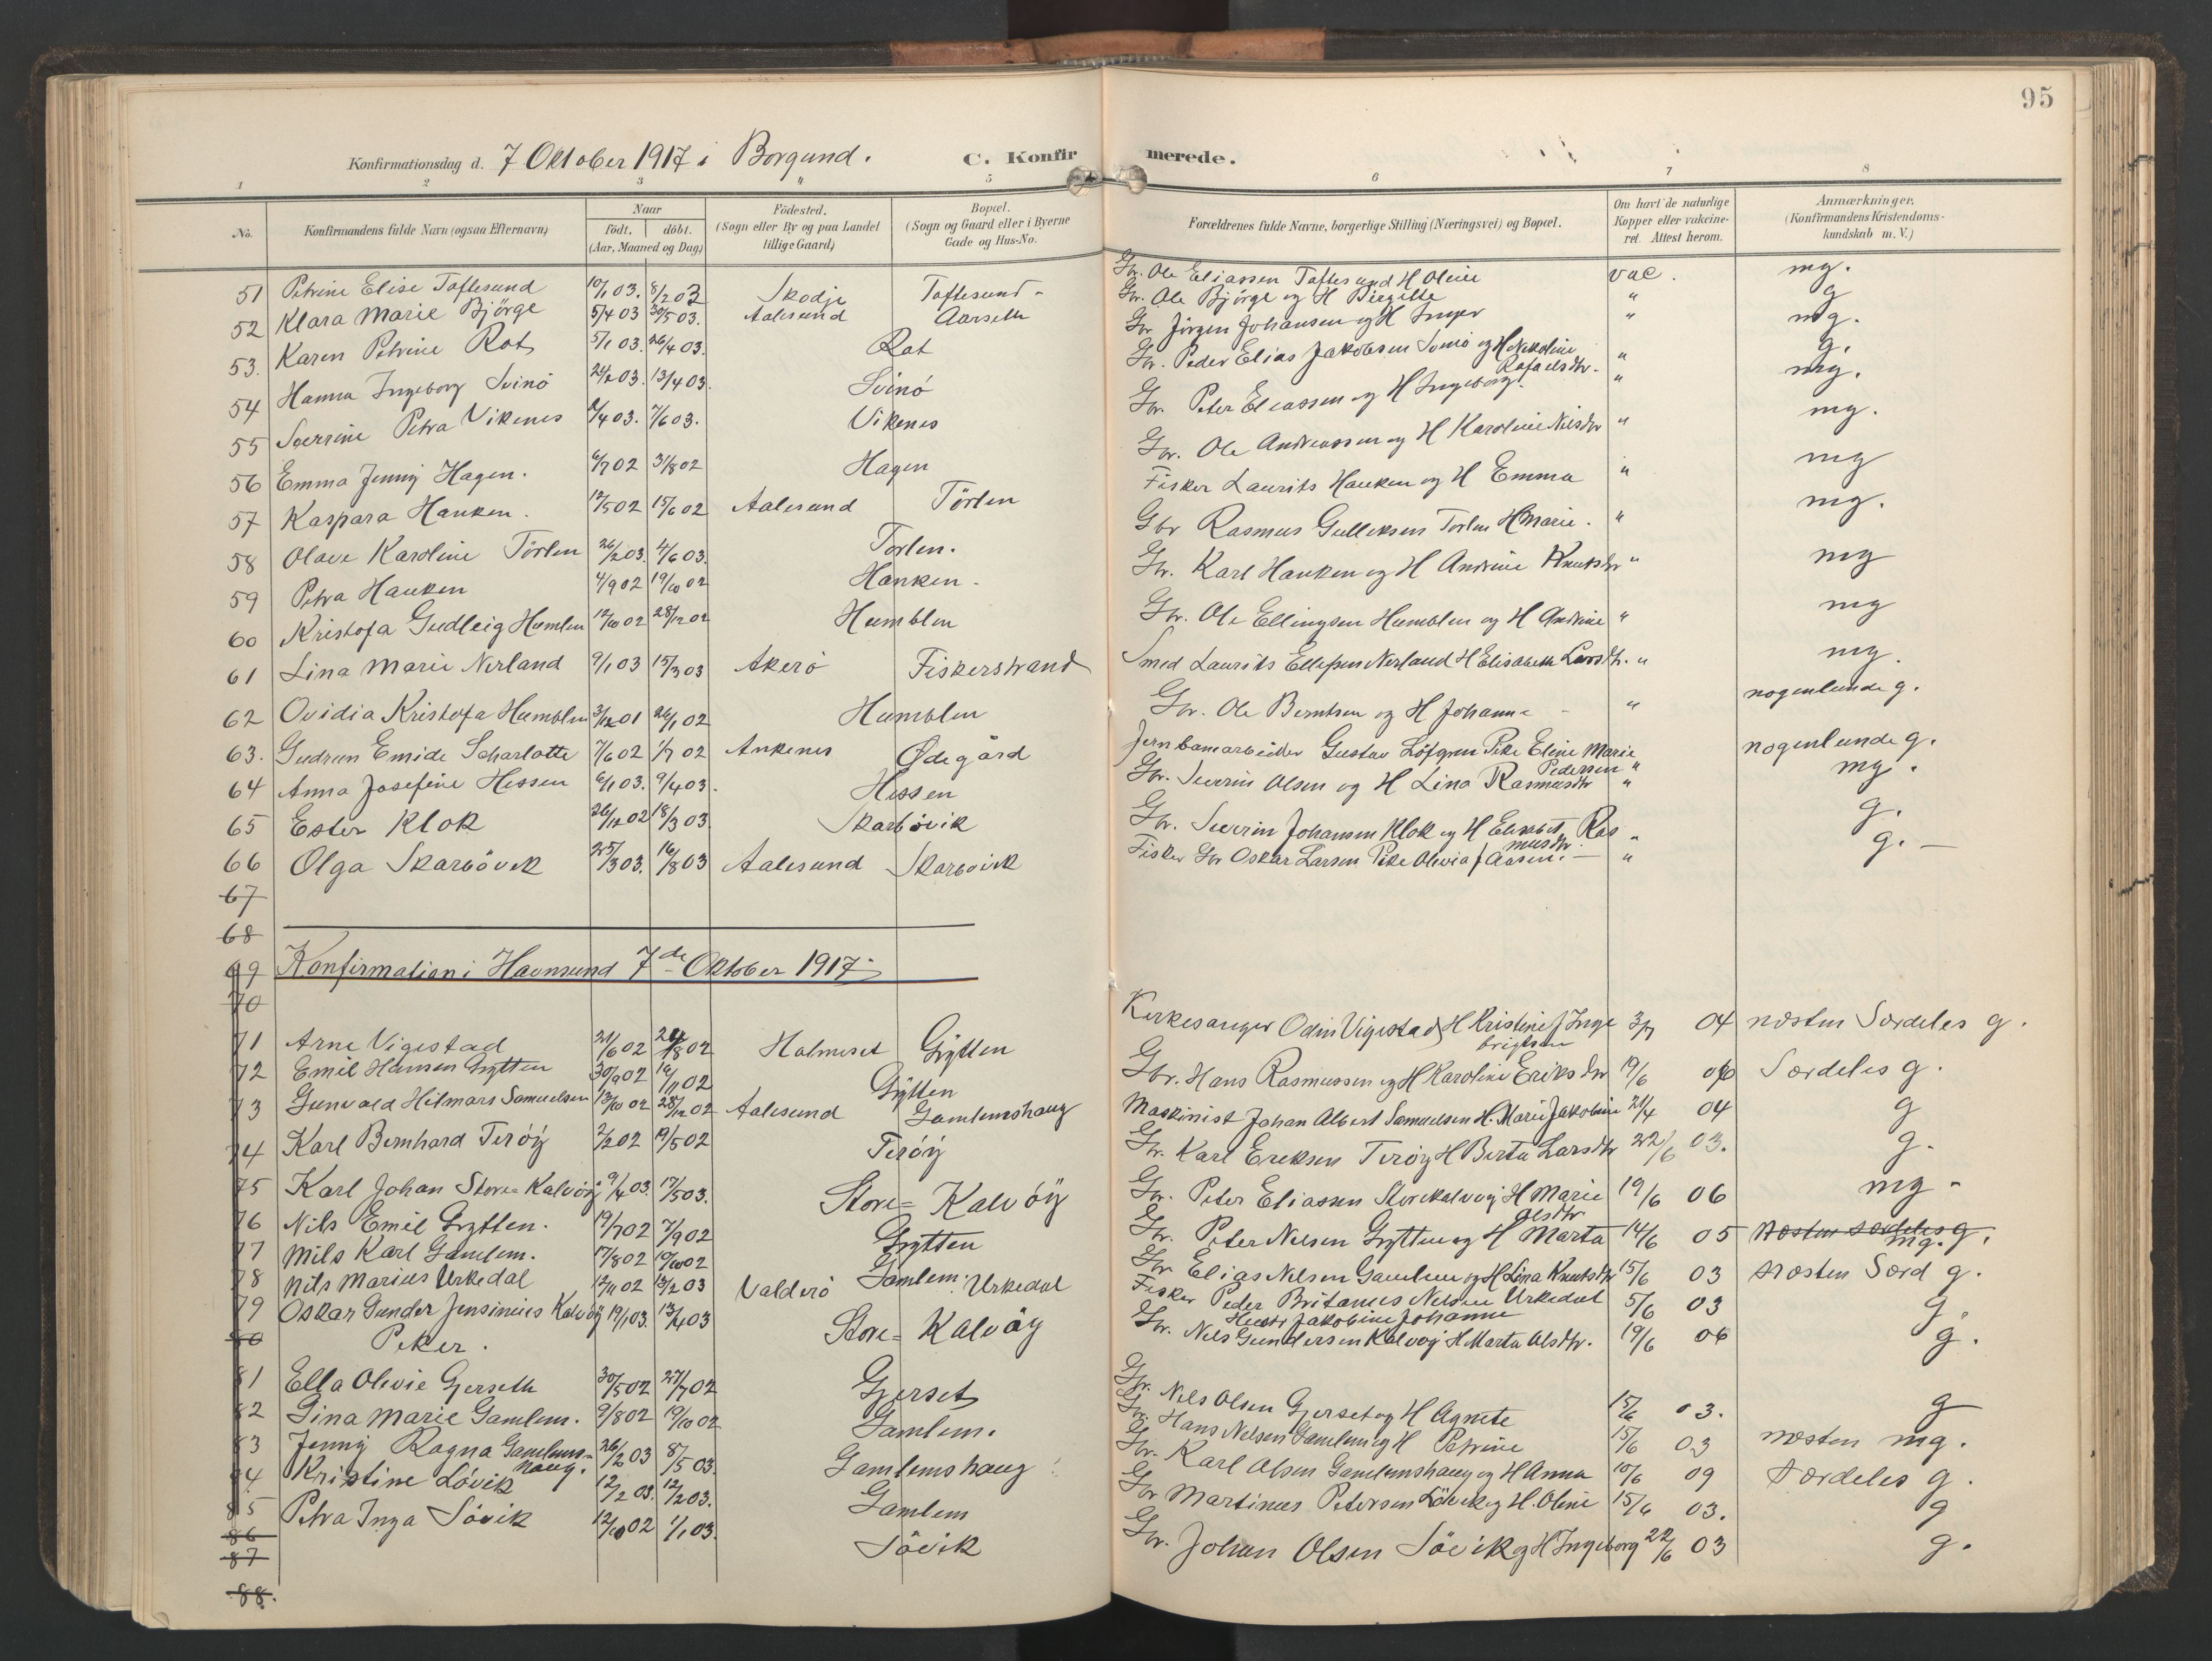 95
Konfirmationsdag d. 7 Oktober 1917 i Borgund. C. Konfirmerede.
1 2 3 4 5 6 7 8
No. Konfirmandens fulde Navn (ogsaa Efternavn) Naar födt. döbt. (Aar, Maaned og Dag) Födested. (Sogn eller By og paa Landet tillige Gaard) Bopæl. (Sogn og Gaard eller i Byerne Gade og Hus-No. Forældrenes fulde Navne, borgerlige Stilling (Næringsvei) og Bopæl. Om havt de naturlige Kopper eller vakcineret. Attest herom. Anmærkninger. (Konfirmandens Kristendomskundskab m. V.)
51 Petrine Elise Toftesund 10/1 03. 8/2 03 Skodje Toftesund - Gbr. Ole Eliassen Toftesund H Oline vac. mg.
52 Klara Marie Bjørge 5/4 03 30/5 03. Aalesund Aarseth Gbr. Ole Bjørge og H Birgitte " g
53. Karen Petrine Rot 5/1 03. 26/4 03. Rot Gbr Jörgen Johansen og H Inger " mg.
54 Hanna Ingeborg Svinö 24/2 03. 13/4 03. Svinö Gbr. Peder Elias Jakobsen Svinö og H Nikoline Rafaelsdtr. " g.
55 Severine Petra Vikenes 2/4 03. 7/6 03. Vikenes Gbr. Peter Eliassen og H Ingeborg. " mg.
56 Emma Jenny Hagen. 6/7 02 31/8 02 Hagen Gbr. Ole Andreassen og H Karoline Nilsdtr " mg.
57 Kaspara Hanken. 12/5 02 15/6 02 Aalesund Törlen Fisker Laurits Hanken og H Emma " mg
58 Olave Karoline Törlen 26/2 03. 4/6 03. Torlen. Gbr Rasmus Gulleksen Torlen H Marie. " mg.
59 Petra Hanken 4/9 02 19/10 02 Hanken. Gbr. Karl Hanken og H Andrine Knutsdtr " mg
60 Kristofa Gudleig Humlen 12/10 02 28/12 02 Humblen Gbr. Ole Ellingsen Humblen og H Andrine " mg
61 Lina Marie Nerland 9/1 03 15/3 03 Akerö Fiskerstrand Smed Laurits Ellefsen Nerland H Elisabeth Larsdtr. " mg.
62 Ovidia Kristofa Humblen 3/12 01 26/1 02 Humblen Gbr. Ole Berntsen og H Johanne - " nogenlunde g.
63. Gudrun Emide Scharlotte 7/6 02 1/7 02 Ankenes Ødegård Jernbanearbeider Gustav Löfgren Pike Eline Marie Pedersen " nogenlunde g.
64 Anna Josefine Hessen 6/1 03. 9/4 03. Hessen Gbr. Severin Olsen og H Lina Rasmusdtr " mg.
65 Ester Klok 26/12 02 18/3 03. Skarbövik Gbr. Severin Johansen Klok og H Elisabet Rasmusdtr " g.
66 Olga Skarbövik 25/3 03. 16/8 03 Aalesund Skarbövik Fisker Gbr Oskar Larsen Pike Olivia J Aasen. - " g. -
67
68
69 Konfirmation i Havnsund 7de Oktober 1917.
70
71 Arne Vigestad 21/6 02 24/8 02 Holmeset Grytten Kirkesanger Odin Vigestad H Kristine f Ingebrigtsen 3/7 04 næsten Særdeles g.
72 Emil Hansen Grytten 30/9 02 16/11 02 Grytten Gbr. Hans Rasmussen og H Karoline Eriksdtr 19/6 06 Særdeles g.
73 Gunvald Hilmars Samuelsen 13/10 02 28/12 02 Aalesund Gamlemshaug Maskinist Johan Albert Samuelsen H. Marie Jakobine 21/4 04 g
74 Karl Bernhard Teröy 2/2 02 19/5 02 Teröy Gbr. Karl Eriksen Teröy H Berta Larsdtr 22/6 03. g.
75 Karl Johan Store-Kalvöy 9/4 03. 17/5 03. Store-Kalvöy Gbr. Peter Eliassen Storekalvöy H Marie Olsdtr 19/6 06 mg -
76 Nils Emil Grytten. 19/7 02 7/9 02 Grytten Gbr. Peter Nilsen Grytten og H Marta 14/6 05 næsten særdeles g. mg.
77 Nils Karl Gamlem. 17/8 02 19/10 02 Gamlem. Gbr Elias Nilsen Gamlem og H Lina Knutsdtr 15/6 03 næsten Særd g.
78 Nils Marius Urkedal 12/11 02 13/2 03 Valderö Urkedal Fisker Peder Britanus Nilsen Urkedal Hustr Jakobine Johanne 5/6 03 g.
79 Oskar Gunder Jensinius Kalvöy 19/1 03. 13/4 03 Store-Kalvöy Gbr. Nils Gundersen Kalvöy H Marta Olsdtr. 19/6 06 g.
80 Piker.
81 Ella Olivie Gjerseth 30/5 02 27/7 02 Gjerset Gbr. Nils Olsen Gjerset og H Agnete 15/6 03. g
82 Gina Marie Gamlem. 9/8 02 19/10 02 Gamlem. Gbr. Hans Nilsen Gamlem og H Petrine 15/6 03 næsten mg.
83 Jenny Ragna Gamlemshaug. 26/2 03 8/5 03. Gamlemshaug Gbr. Karl Olsen Gamlemshaug og H Anna 10/6 09 særdeles g.
84 Kristine Lövik 12/2 03. 12/2 03. Gamlem Gbr Martinus Petersen Lövik og H. Oline 15/6 03. g
85 Petra Inga Sövik 12/10 02 1/1 03. Sövik Gbr. Johan Olsen Sövik og H Ingeborg 22/6 03 g.
86
87
88.